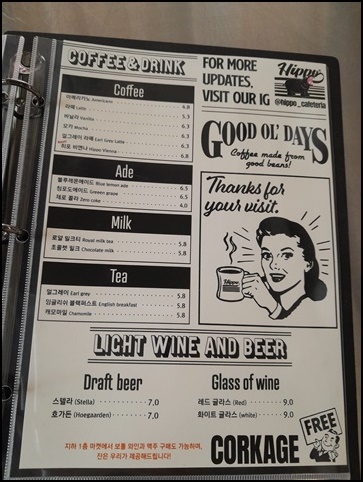 COFFEE & DRINK
Coffee
아메리카노 Americano 4.8
라떼 Latte 5.3
바닐라 Vanilla 6.3
모카 Mocha 6.3
얼그레이 라떼 Earl Grey Latte 6.3
히포 비엔나 Hippo Vienna 6.8
Ade
블루레몬에이드 Blue lemon ade 6.5
청포도에이드 Green grape 6.5
제로 콜라 Zero coke 4.0
Milk
로얄 밀크티 Royal milk tea 5.8
초콜렛 밀크 Chocolate milk 5.8
Tea
얼그레이 Earl grey 5.8
잉글리쉬 블랙퍼스트 English breakfast 5.8
캐모마일 Chamomile 5.8
FOR MORE
UPDATES,
VISIT OUR IG
Hippo
@hippo_cafeteria
GOOD OL' DAYS
Coffee made from
good beans!
Thanks for
your visit.
Hippo
LIGHT WINE AND BEER
Draft beer
스텔라 (Stella) 7.0
호가든 (Hoegaarden) 7.0
Glass of wine
레드 글라스 (Red) 9.0
화이트 글라스 (white) 9.0
지하 1층 마켓에서 보틀 와인과 맥주 구매도 가능하며,
잔은 우리가 제공해드립니다!
CORKAGE
FREE